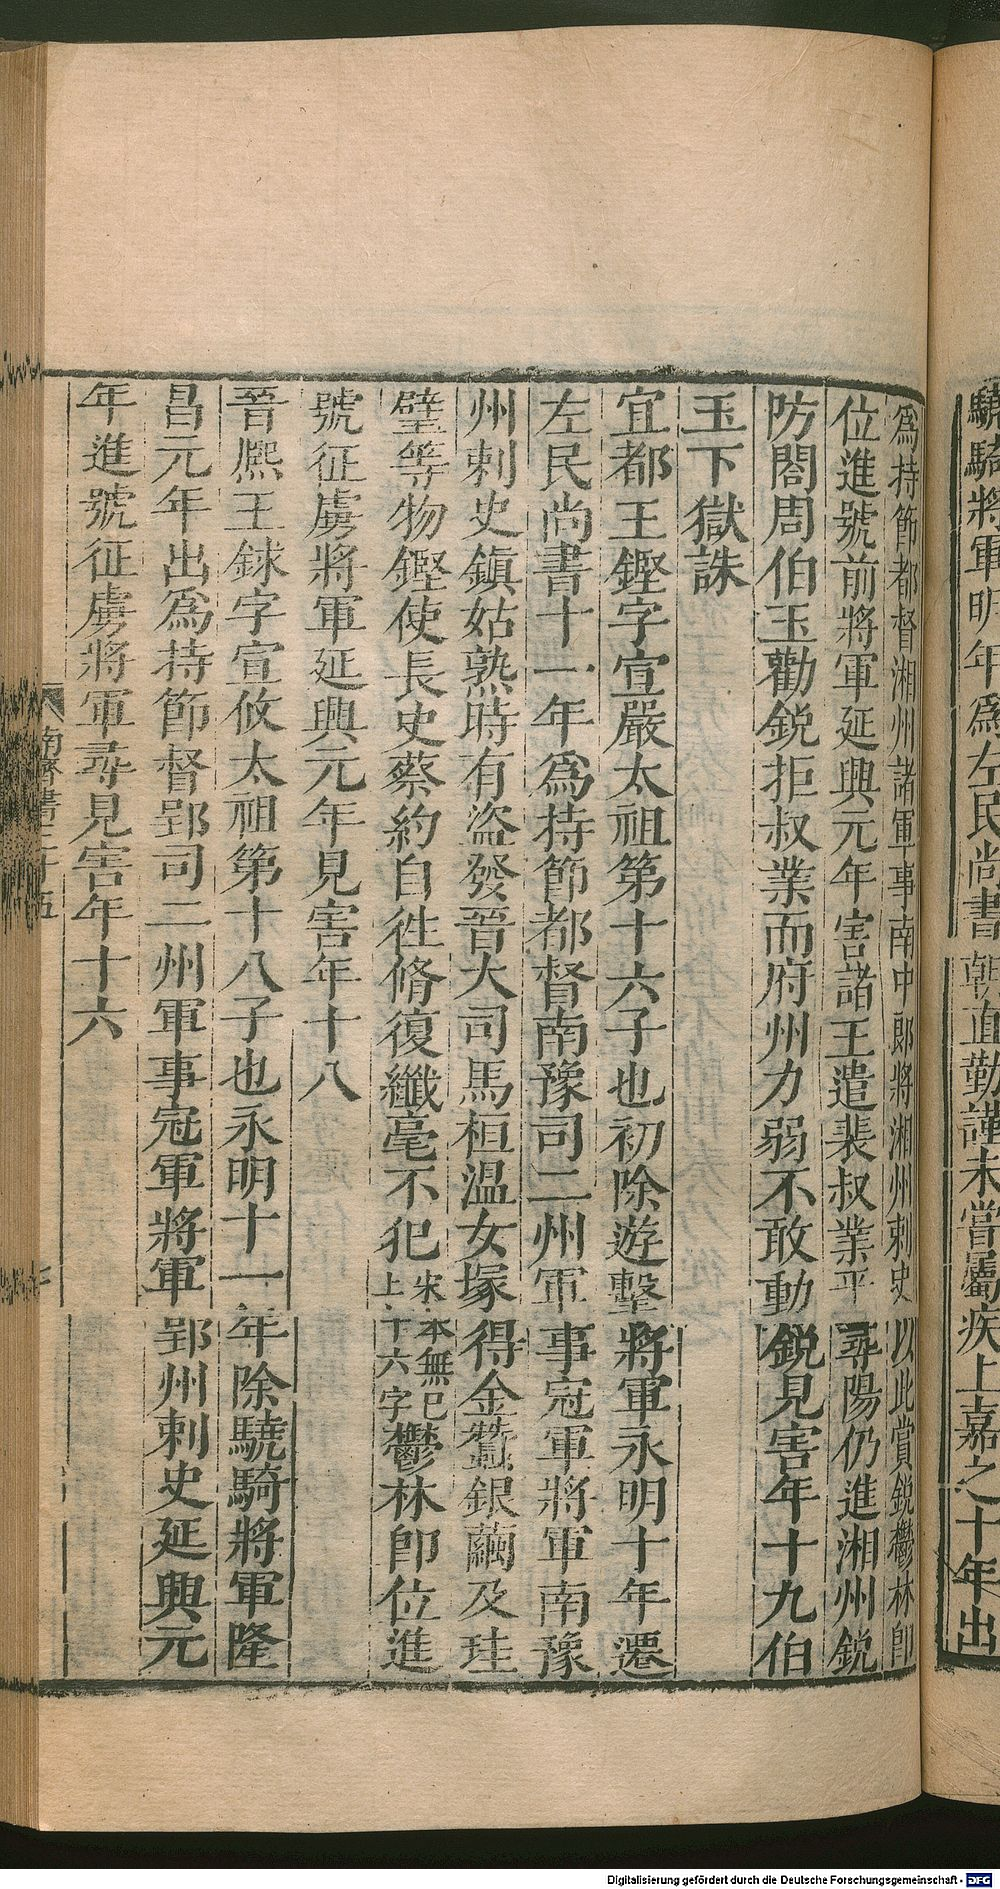 驍騎將軍明年爲左民尚書朝直勤謹未嘗屬疾上嘉之十年出
爲持節都督湘州諸軍事南中郞將湘州刺史以此賞銳鬱林卽
位進號前將軍延興元年害諸王遣裴叔業平尋陽仍進湘州銳
防閤周伯玉勸銳拒叔業而府州力弱不敢動銳見害年十九伯
玉下獄誅
宜都王鏗字宣嚴太祖第十六子也初除遊擊將軍永明十年遷
左民尚書十一年爲持節都督南豫司二州軍事冠軍將軍南豫
州刺史鎮姑熟時有盜發晉大司馬桓温女塚得金蠶銀繭及珪
璧等物鏗使長史蔡約自徃脩復纖毫不犯宋本無巳上十六字鬱林卽位進
號征虜將軍延興元年見害年十八
晉熈王銶字宣攸太祖第十八子也永明十一年除驍騎將軍隆
昌元年出爲持節督郢司二州軍事冠軍將軍郢州刺史延興元
年進號征虜將軍尋見害年十六
南齊書三十五
七
Digitalisierung gefördert durch die Deutsche Forschungsgemeinschaft - DFG